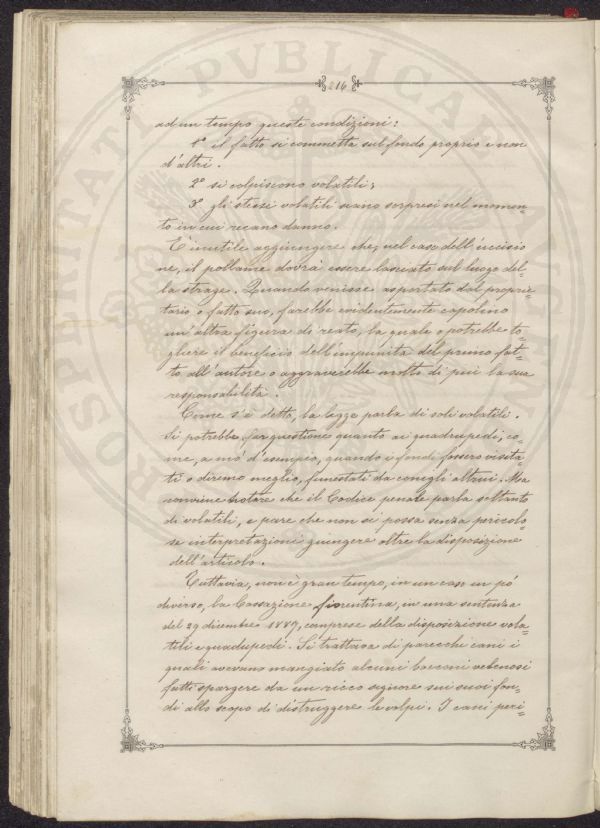 216
ad un tempo queste condizioni:
1º il fatto si commetta sul fondo proprio e non
d'altri.
2º si colpiscono volatili;
3º gli stessi volatili siano sorpresi nel momen-
to in cui recano danno.
È inutile aggiungere che, nel caso dell'uccisio
ne, il pollame dovrà essere lasciato sul luogo del-
la strage. Quando venisse asportato dal proprie-
tario o fatto suo, farebbe evidentemente capolino
un'altra figura di reato, la quale o potrebbe to-
gliere il beneficio dell'impunità del primo fat-
to all'autore o aggraverebbe molto di più la sua
responsabilità.
Come s'è detto, la legge parla di soli volatili.
Si potrebbe far questione quanto ai quadrupedi, co-
me, a mo' d'esempio, quando i fondi fossero visita-
ti o diremo meglio, funestati da conigli altrui. Ma
conviene notare che il Codice penale parla soltanto
di volatili, e pare che non si possa senza pericolo-
se interpretazioni giungere oltre la disposizione
dell'articolo.
Tuttavia, non è gran tempo, in un caso un pó
diverso, la Cassazione fiorentina, in una sentenza
del 29 dicembre 1889, comprese della disposizione vola-
tili e quadupedi. Si trattava di parecchi cani i
quali avevano mangiato alcuni bocconi velenosi
fatti spargere da un ricco signore sui suoi fon-
di allo scopo di distruggere le volpi. I cani peri-
PROSPERITATI PVBLICAE AVGENDAE